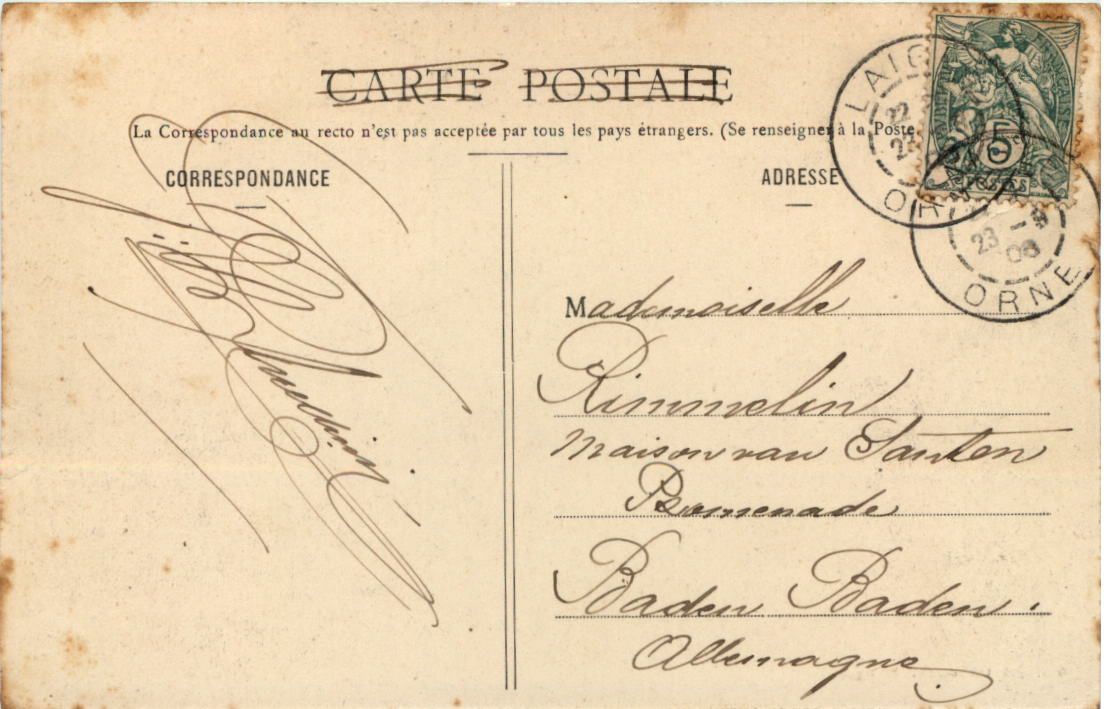 CARTE POSTALE
La Correspondance au recto n'est pas acceptée par tous les pays étrangers. (Se renseigner à la Poste
CORRESPONDANCE
ADRESSE
LAIG
ORNE
5
POSTES
23 -9
08
ORNE
Mademoiselle
Rimmelin
Maison van Santen
Promenade
Baden Baden.
Allemagne